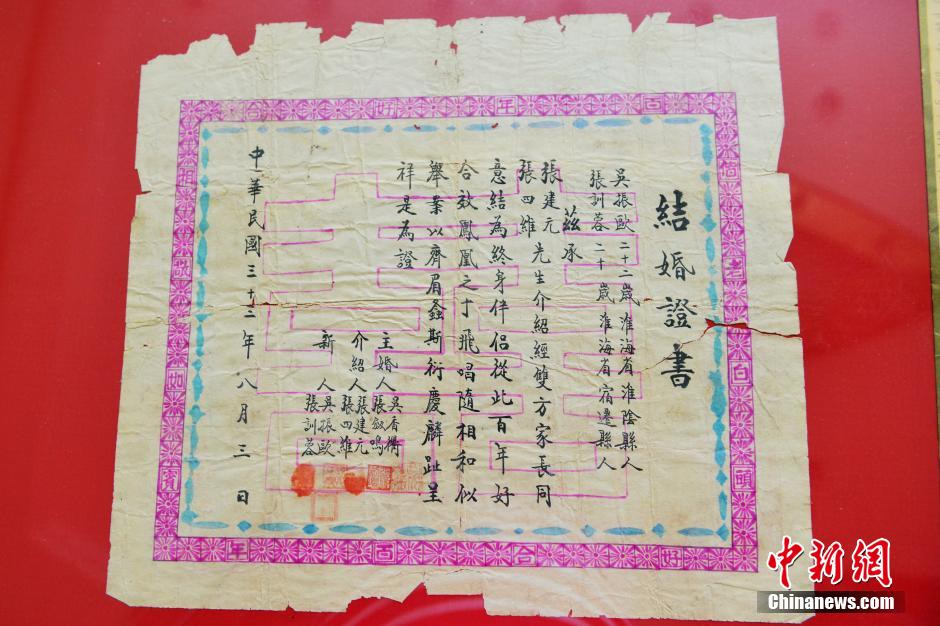 百年好合
偕老白頭
好合百年
相敬如賓
結婚證書
吳振歐二十二歲淮海省淮陰縣人
張訓蓉二十歲淮海省宿遷縣人
茲承
張建元
張四維
先生介紹經雙方家長同
意結為終身伴侶從此百年好
合效鳳凰之于飛唱隨相和似
舉案以齊眉螽斯衍慶麟趾呈
祥是為證
主婚人
吳香衢
張敘鳴
介紹人
張建元
張四維
新人
吳振歐
張訓蓉
中華民國三十三年八月三日
中新網
Chinanews.com